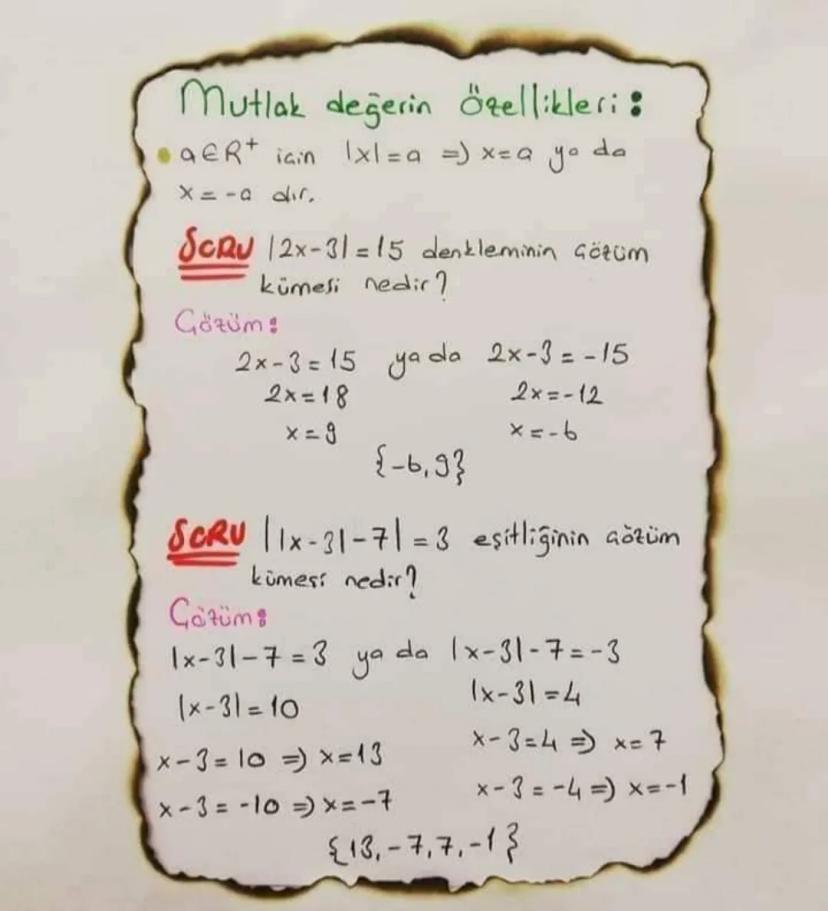 Mutlak değerin Özellikleri:
• a∈R⁺ için |x|=a ⇒ x=a ya da
x=-a dır.
SORU |2x-3|=15 denkleminin çözüm
kümesi nedir?
Çözüm:
2x-3=15 ya da 2x-3=-15
2x=18 2x=-12
x=9 x=-6
{-6,9}
SORU ||x-3|-7|=3 eşitliğinin çözüm
kümesi nedir?
Çözüm:
|x-3|-7=3 ya da |x-3|-7=-3
|x-3|=10 |x-3|=4
x-3=10 ⇒ x=13 x-3=4 ⇒ x=7
x-3=-10 ⇒ x=-7 x-3=-4 ⇒ x=-1
{13,-7,7,-1}